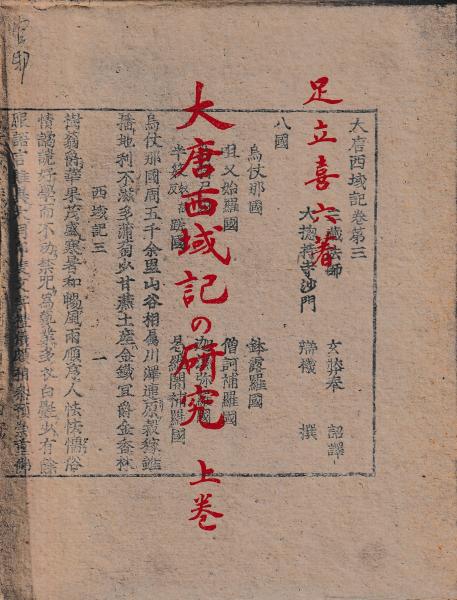 足立喜六著
大唐西域記の研究 上巻
大唐西域記卷第三
三藏法師 玄奘奉 詔譯
大揔持寺沙門 辯機 撰
八國
烏仗那國 鉢露羅國
呾叉始羅國 僧訶補羅國
烏仗那國周五千余里山谷相屬川澤連原穀稼雖
播地利不滋多蒲萄少甘蔗土產金鐵宜欝金香林
西域記三 一
樹蓊欝華果茂盛寒暑和暢風雨順序人性怯懦俗
情譎詭好學而不功禁咒為藝業多衣白㲲少有餘
服語言雖異大同